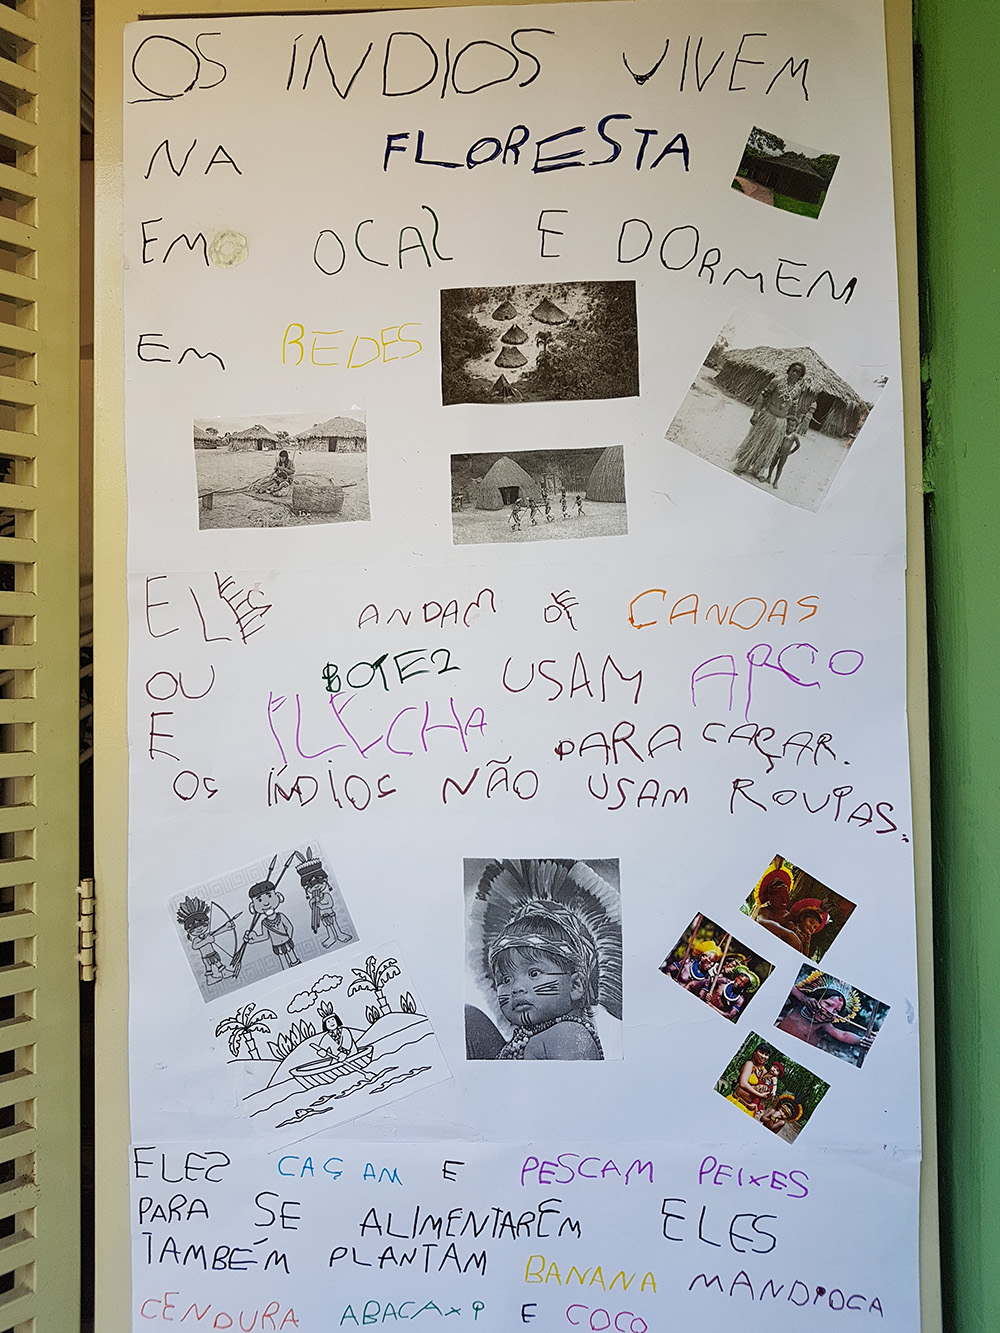 OS ÍNDIOS VIVEM
NA FLORESTA
EM OCAS E DORMEM
EM REDES
ELES ANDAM DE CANOAS
OU BOTES USAM ARCO
E FLECHA PARA CAÇAR.
OS ÍNDIOS NÃO USAM ROUPAS.
ELES CAÇAM E PESCAM PEIXES
PARA SE ALIMENTAREM ELES
TAMBÉM PLANTAM BANANA MANDIOCA
CENOURA ABACAXI E COCO